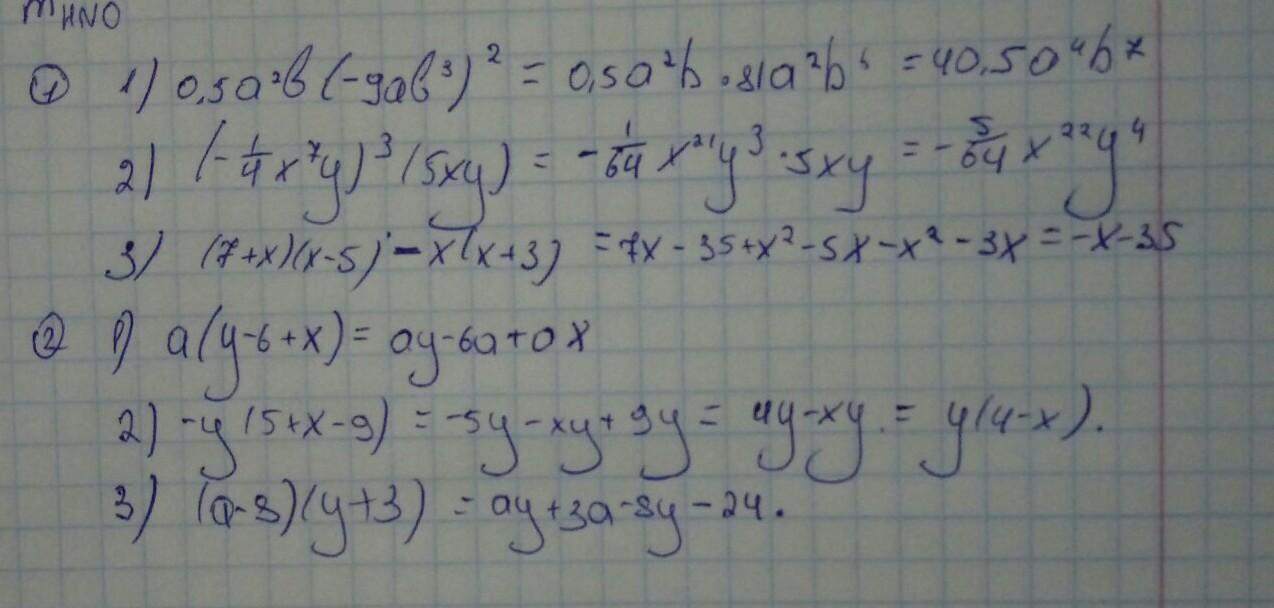 m HNO
① 1) 0,5a²b (-9ab³)² = 0,5a²b · 81a²b⁶ = 40,5a⁴b⁷
2) (-1/4 x⁷y)³ (5xy) = -1/64 x²¹y³ · 5xy = -5/64 x²²y⁴
3) (7+x)(x-5) - x(x+3) = 7x - 35 + x² - 5x - x² - 3x = -x - 35
② 1) a(y-6+x) = ay - 6a + ax
2) -y(5+x-9) = -5y - xy + 9y = 4y - xy = y(4-x).
3) (a-8)(y+3) = ay + 3a - 8y - 24.